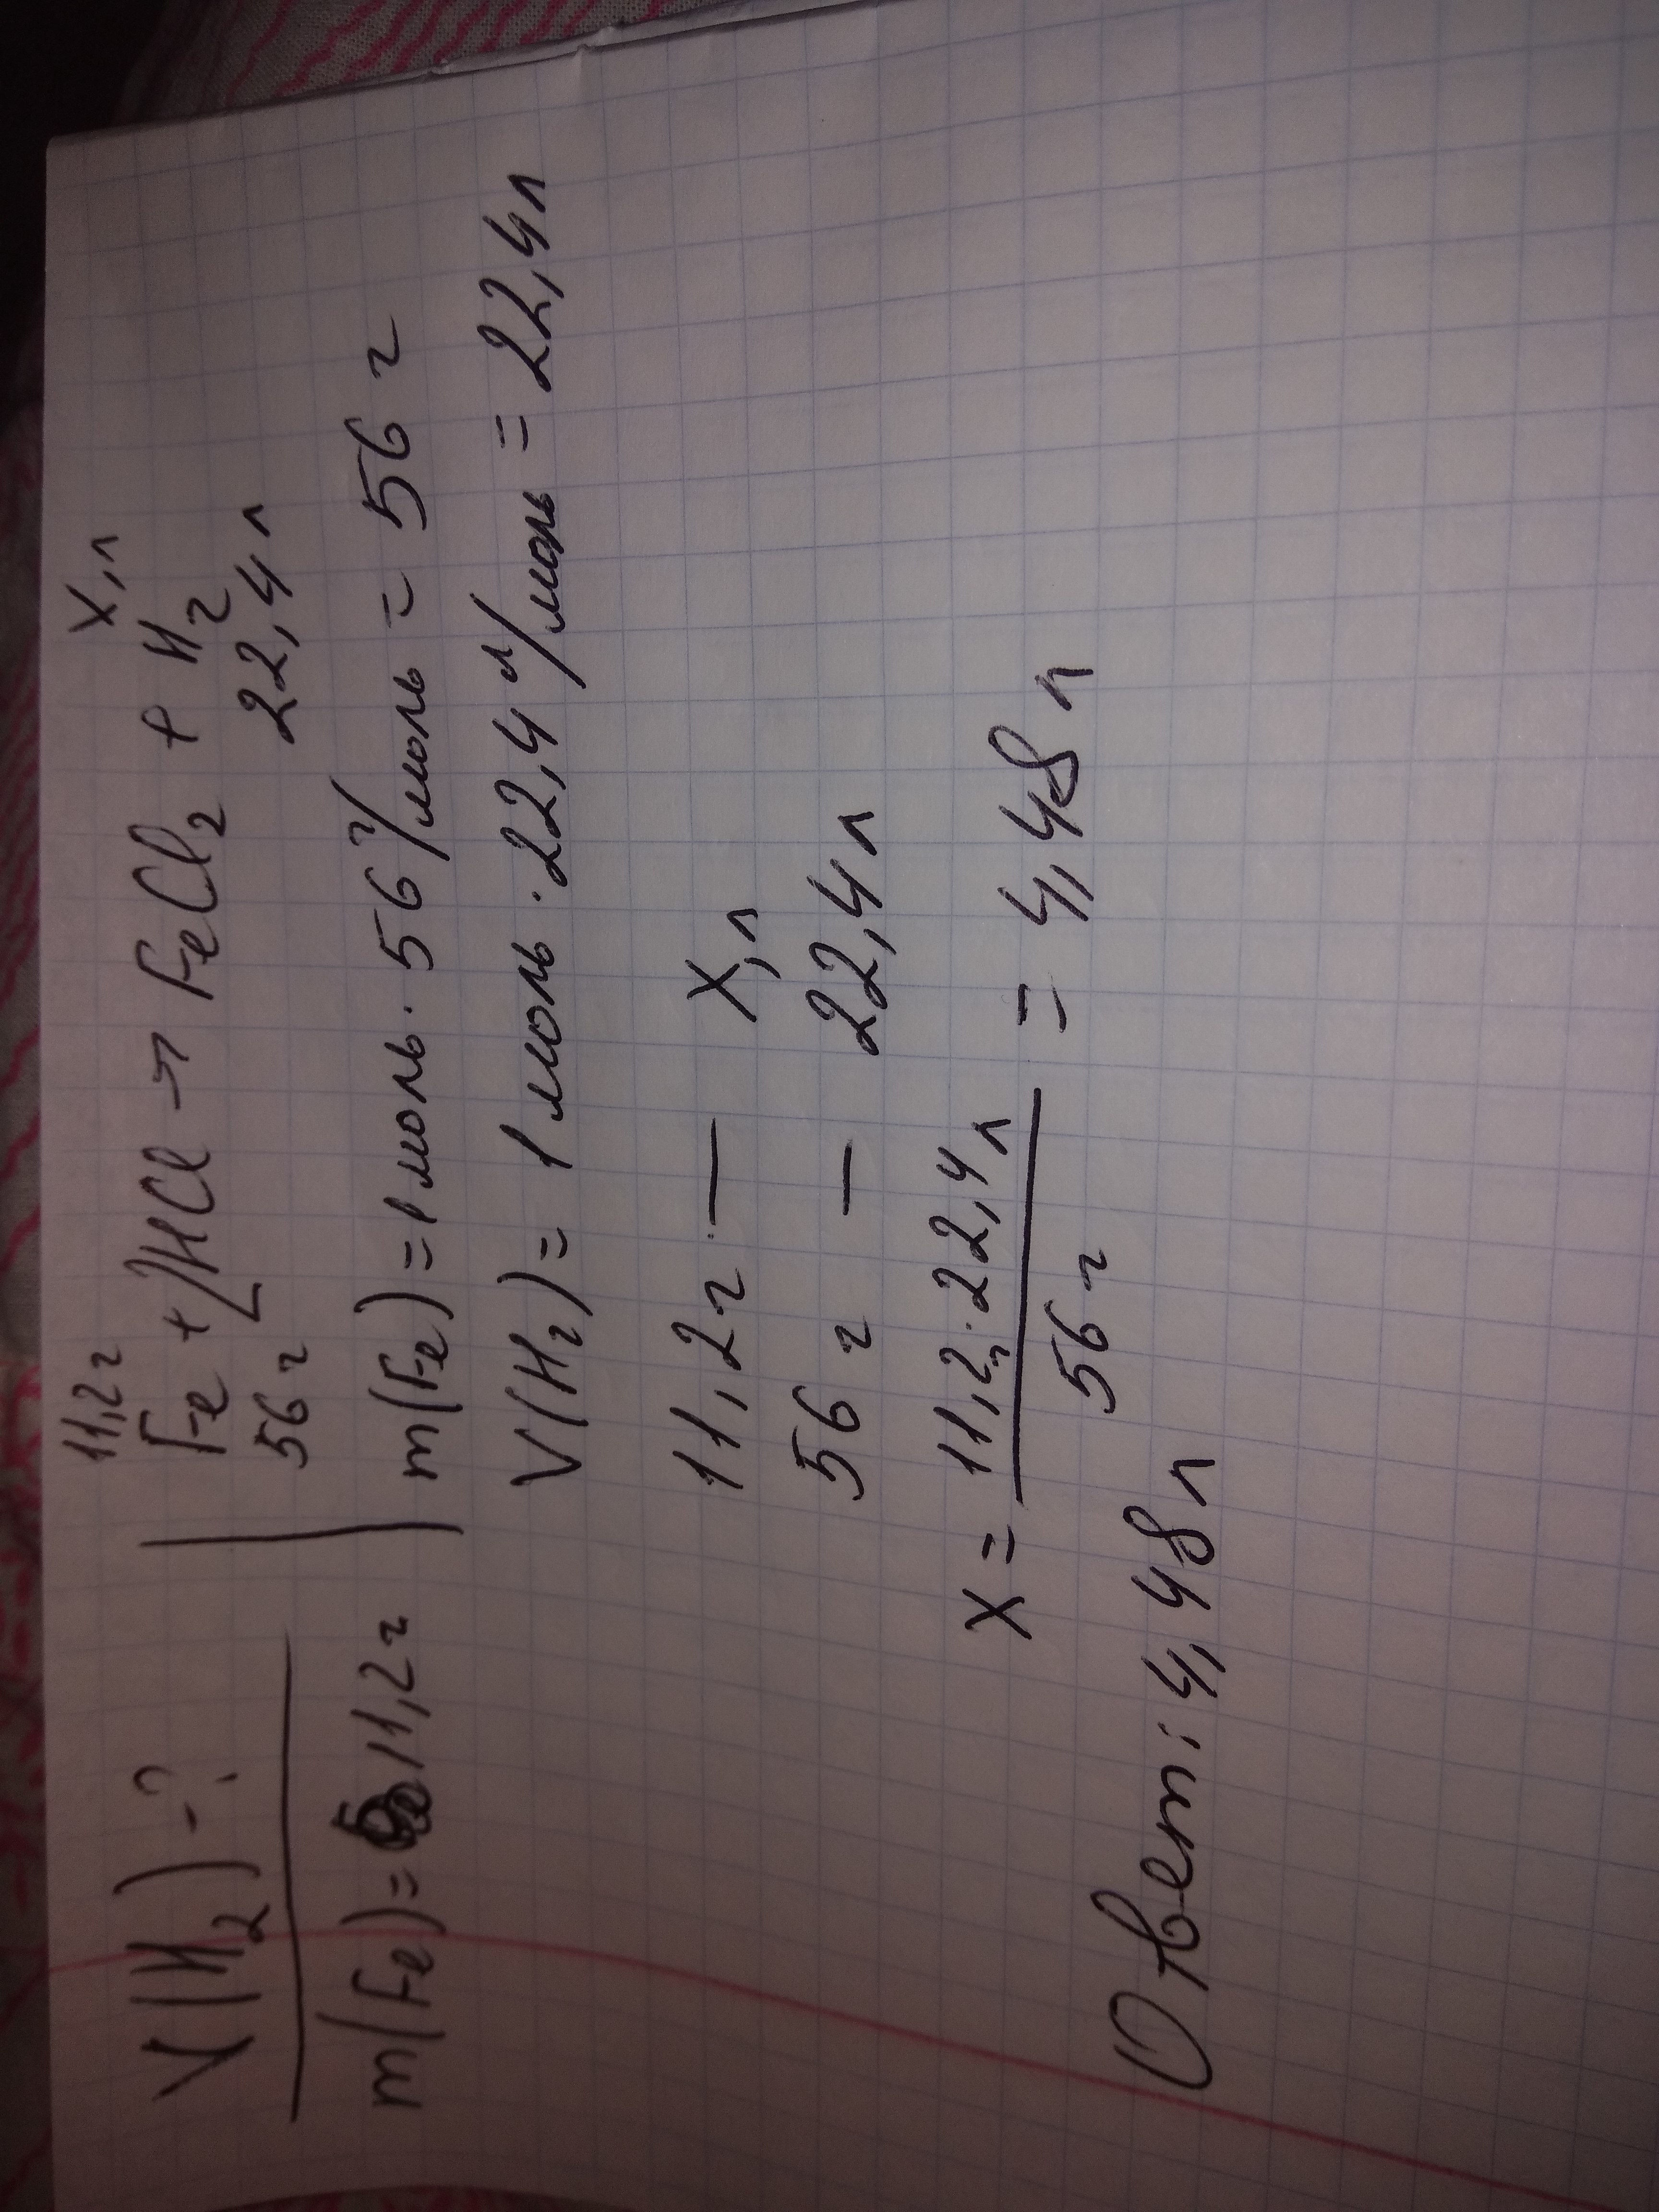 V(H₂) - ?
m(Fe) = 11,2 г
11,2 г X, л
Fe + 2HCl → FeCl₂ + H₂
56 г 22,4 л
m(Fe) = 1 моль · 56 г/моль = 56 г
V(H₂) = 1 моль · 22,4 л/моль = 22,4 л
11,2 г — X, л
56 г — 22,4 л
X = 11,2 г · 22,4 л / 56 г = 4,48 л
Ответ: 4,48 л